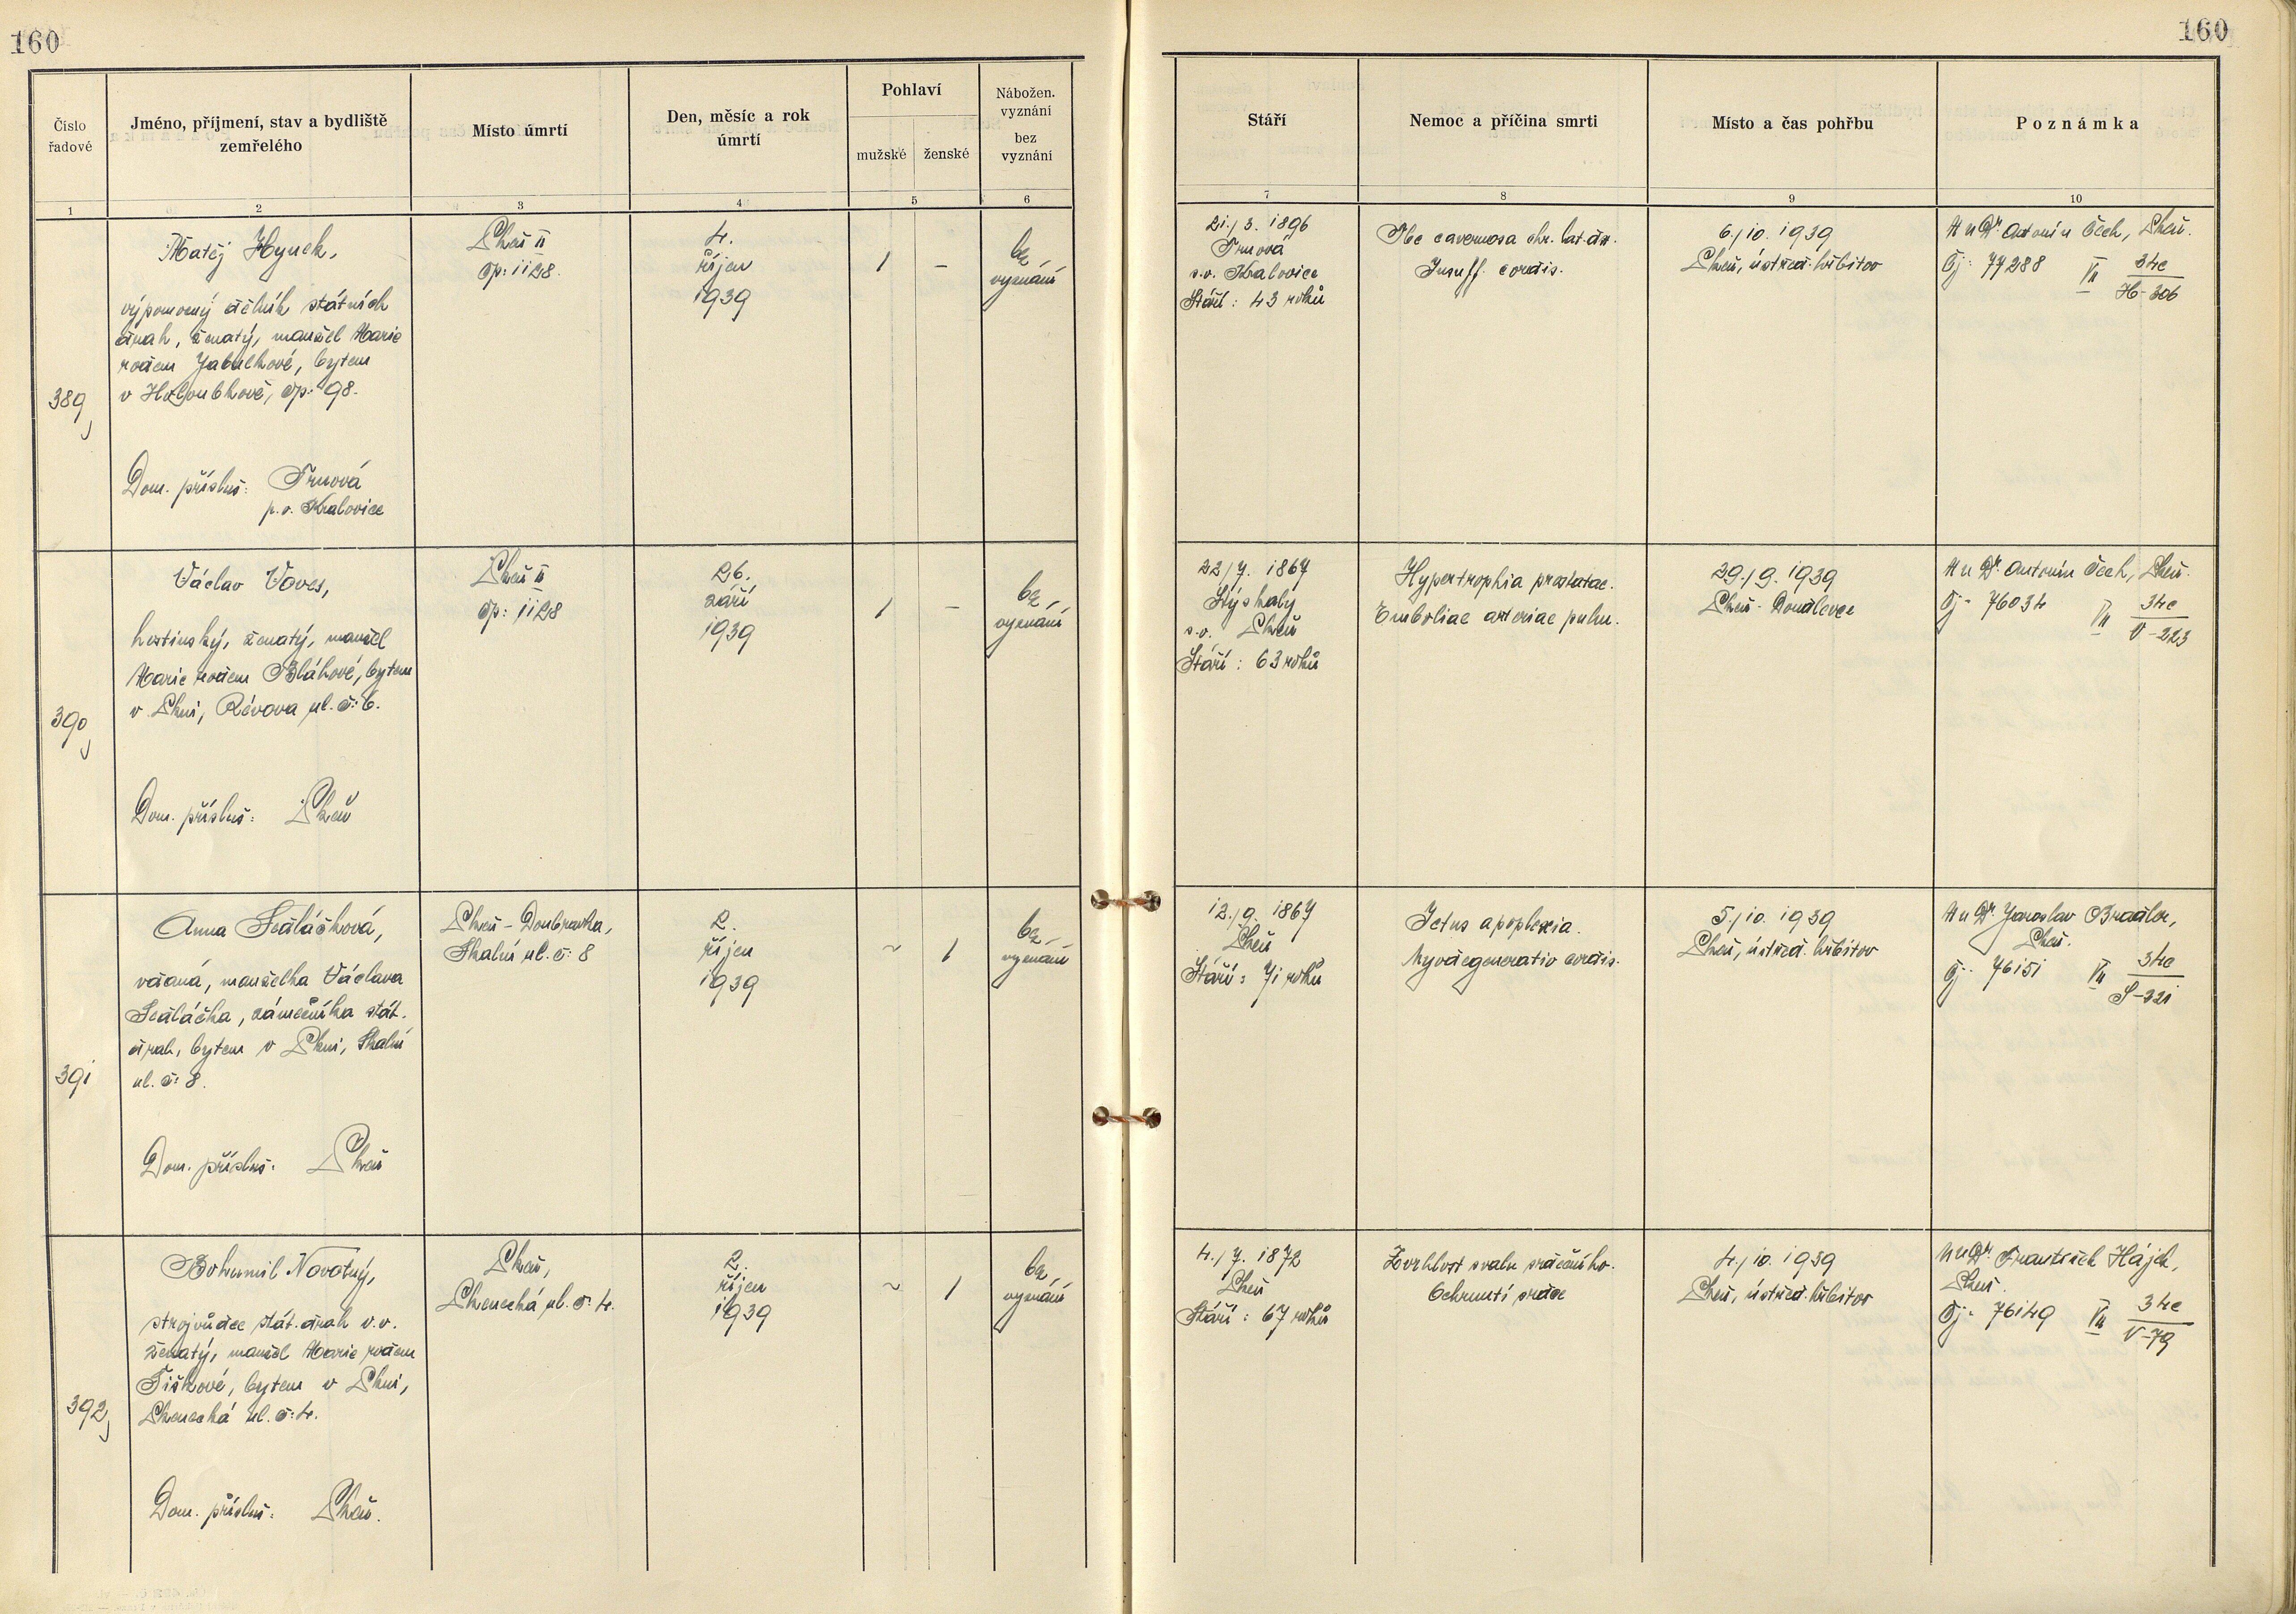 160
160
Číslo řadové
Jméno, příjmení, stav a bydliště zemřelého
Místo úmrtí
Den, měsíc a rok úmrtí
Pohlaví
mužské
ženské
Nábožen. vyznání
bez vyznání
Stáří
Nemoc a příčina smrti
Místo a čas pohřbu
Poznámka
1
2
3
4
5
6
7
8
9
10
389
Matěj Hynek,
výpomocný dělník státních
drah, ženatý, manžel Marie
rodem Jabulkové, bytem
v Holoubkově, čp: 98.
Dom. přísluš: Trnová
p.o. Kralovice
Plzeň II
čp: 1128.
4.
říjen
1939
1
–
bez
vyznání
21./3. 1896
Trnová
s.o. Kralovice
Stáří: 43 roků
Tbc cavernosa chr. lat. dx.
Insuff. cordis.
6./10. 1939
Plzeň, ústřed. hřbitov
MuDr Antonín Čech, Plzeň.
Čj: 77288 VII 34c
H-306
390
Václav Voves,
hostinský, ženatý, manžel
Marie rodem Bláhové, bytem
v Plzni, Révova ul. č: 6.
Dom. přísluš: Plzeň
Plzeň II
čp: 1128
26.
září
1939
1
–
bez
vyznání
22/7. 1867
Lýskaly
s.o. Plzeň
Stáří: 63 roků
Hypertrophia prostatae.
Emboliae arteriae pulm.
29./9. 1939
Plzeň - Doudlevce
MuDr. Antonín Čech, Plzeň.
Čj: 76034 VII 34c
V-223
391
Anna Sedláčková,
vdaná, manželka Václava
Sedláčka, zámečníka stát.
drah, bytem v Plzni, Skalní
ul. č: 8.
Dom. příslus: Plzeň
Plzeň - Doubravka,
Skalní ul. č: 8
2.
říjen
1939
~
1
bez
vyznání
12./9. 1867
Plzeň
Stáří: 71 roků
Ictus apoplexia.
Myodegeneratio cordis.
5./10. 1939
Plzeň, ústřed. hřbitov
MuDr. Jaroslav
Plzeň.
Čj: 76151 VII 34c
S-221
392
Bohumil Novotný,
strojvůdce stát. drah v.v.
ženatý, manžel Marie rodem
Tiškové, bytem v Plzni,
Plzenecká ul. č: 4.
Dom. příslus: Plzeň.
Plzeň,
Plzenecká ul. č: 4.
2.
říjen
1939
~
1
bez
vyznání
4./7. 1872
Plzeň
Stáří: 67 roků
Zvrhlost svalu srdečního.
Ochrnutí srdce
4./10. 1939
Plzeň, ústřed. hřbitov
MuDr. František Hájek,
Plzeň.
Čj: 76149 VII 34c
V-79